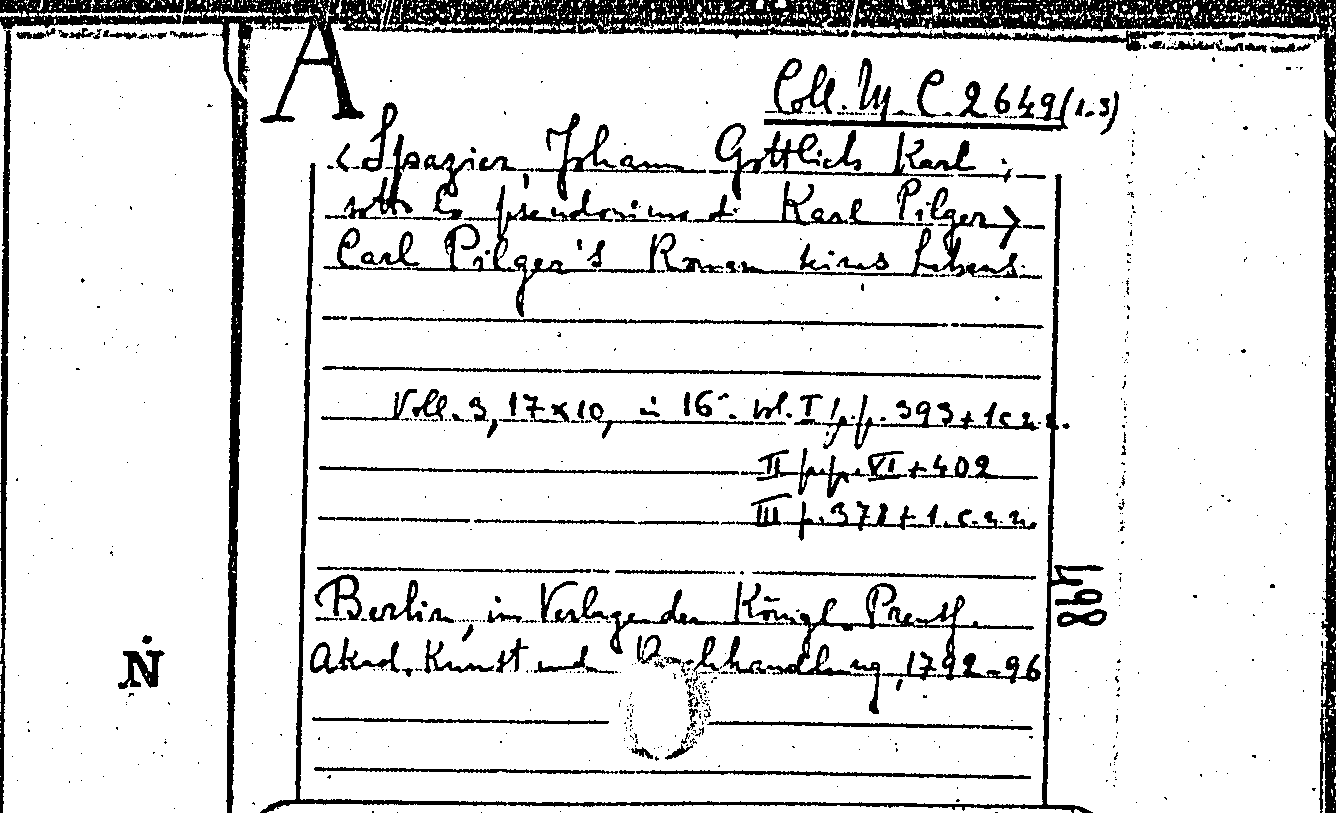 A
Coll. M. C. 2649 (1.3)
<Spazier, Johann Gottlieb Karl;
sotto lo pseudonimo di Karl Pilger>
Carl Pilger's Roman seines Lebens.
Voll. 3, 17x10, in 16°. vol. I p.p. 393+1c.n.n.
II p.p. VI+402
III p. 378+1.c.n.n.
Berlin, im Verlage der Königl. Preuss.
Akad. Kunst und Buchhandlung, 1792-96
N